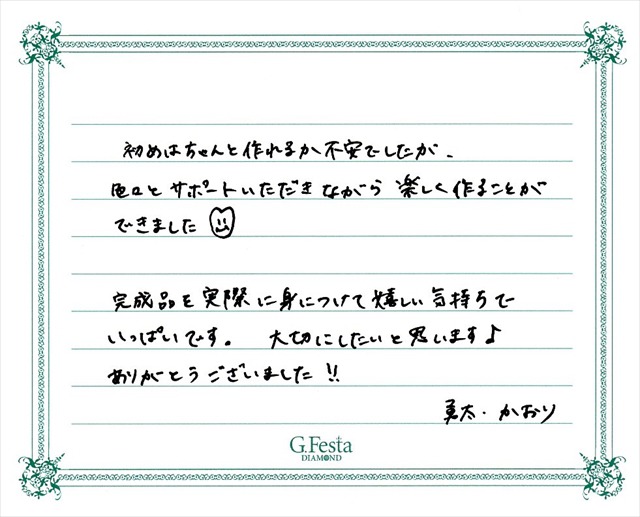 初めはちゃんと作れるか不安でしたが、
色々とサポートいただきながら 楽しく作ることが
できました
完成品を実際に身につけて嬉しい気持ちで
いっぱいです。 大切にしたいと思います♪
ありがとうございました!!
勇太・かおり
G.Festa
DIAMOND